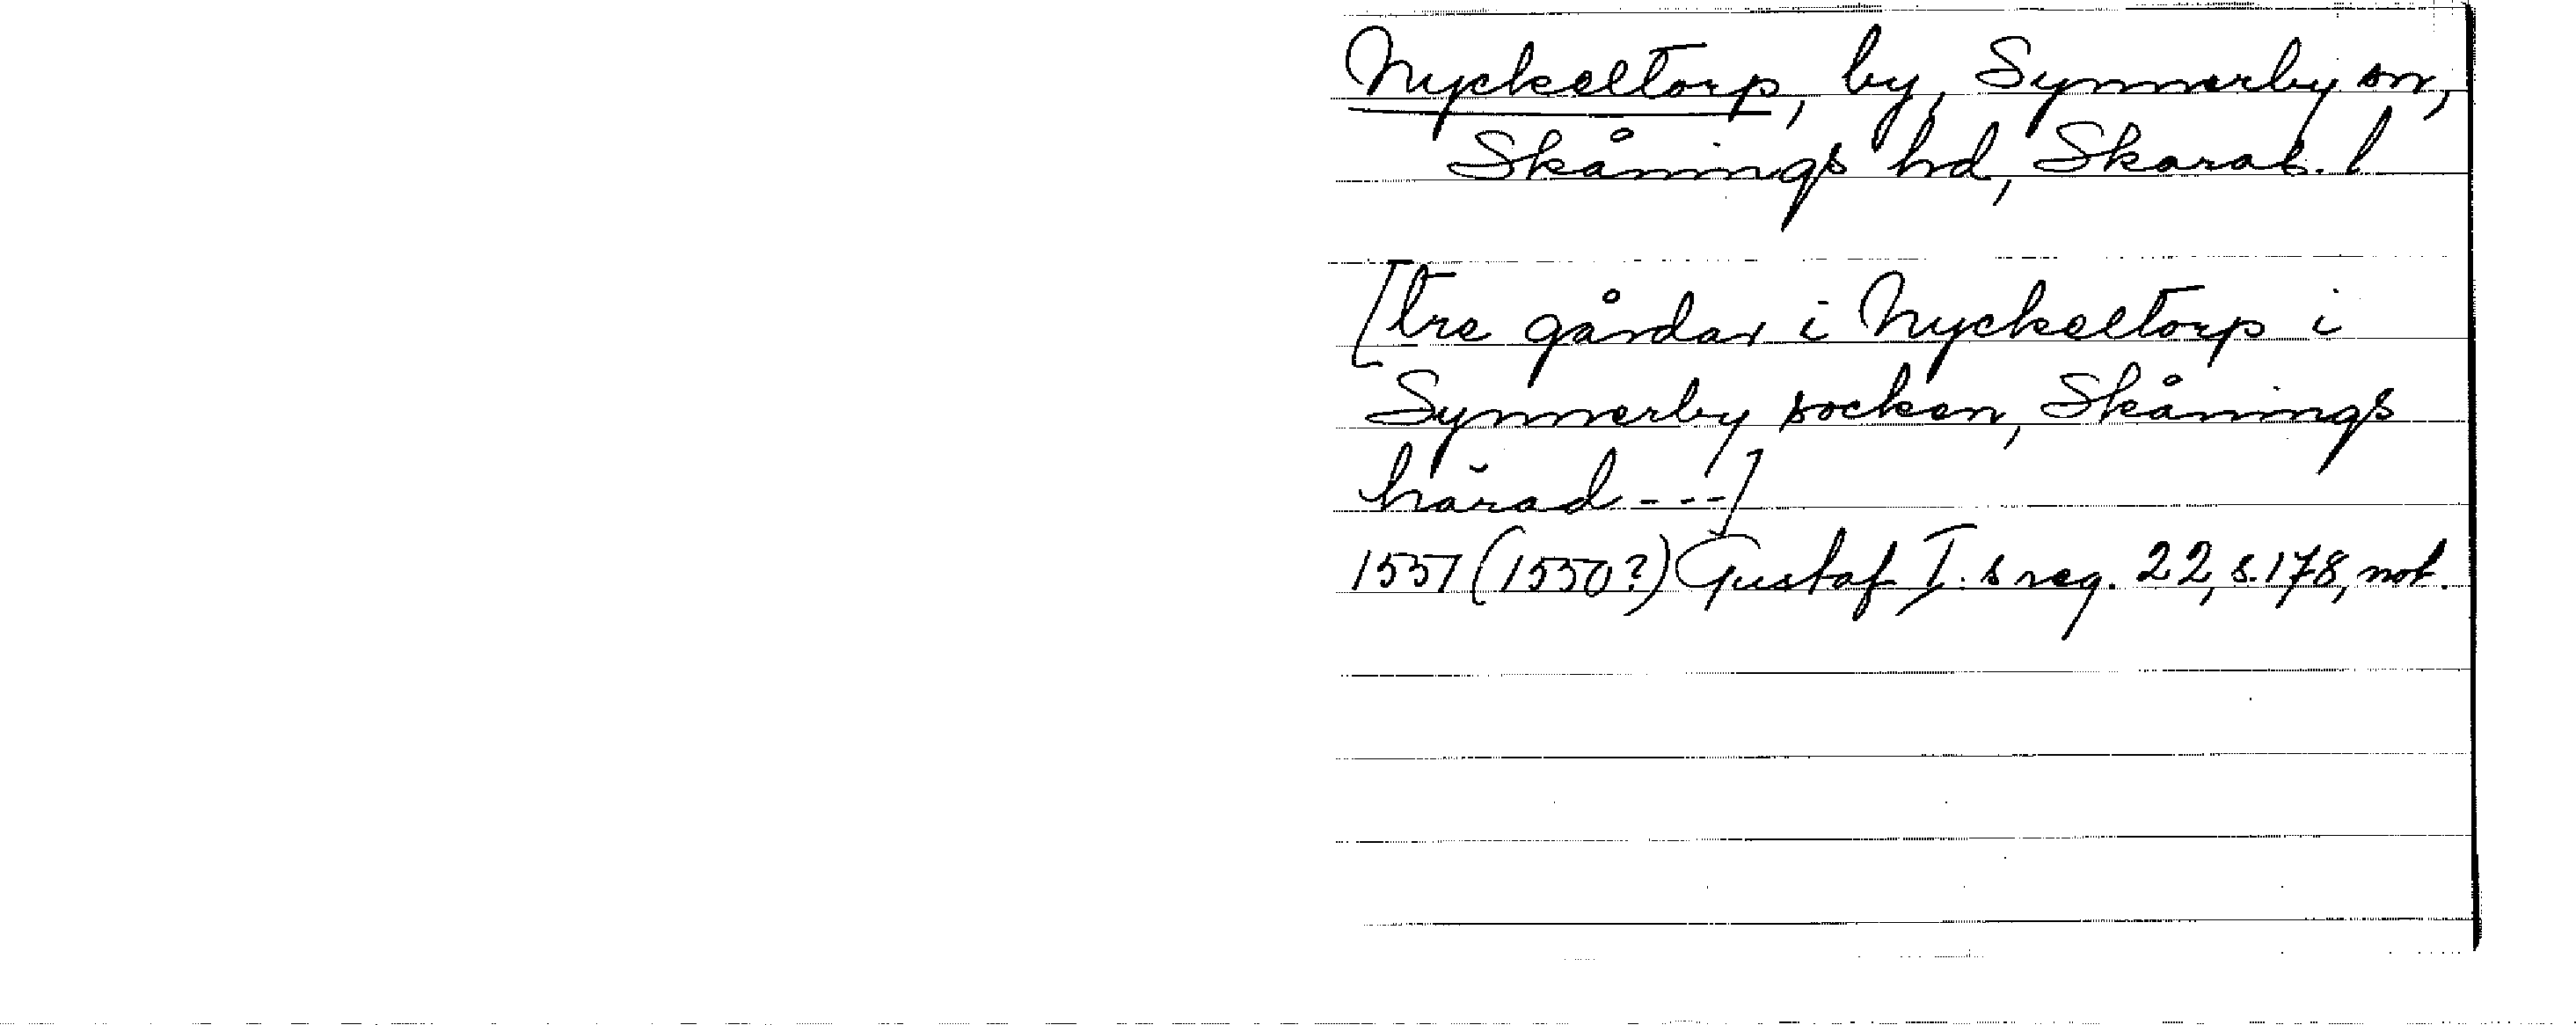 Nyckeltorp, by, Synnerby sn,
Skånings hd, Skarab. l
[tre gårdar i Nyckeltorp i
Synnerby socken, Skånings
härad ---]
1551 (1550?) Gustaf I. s reg. 22, s. 178, not.